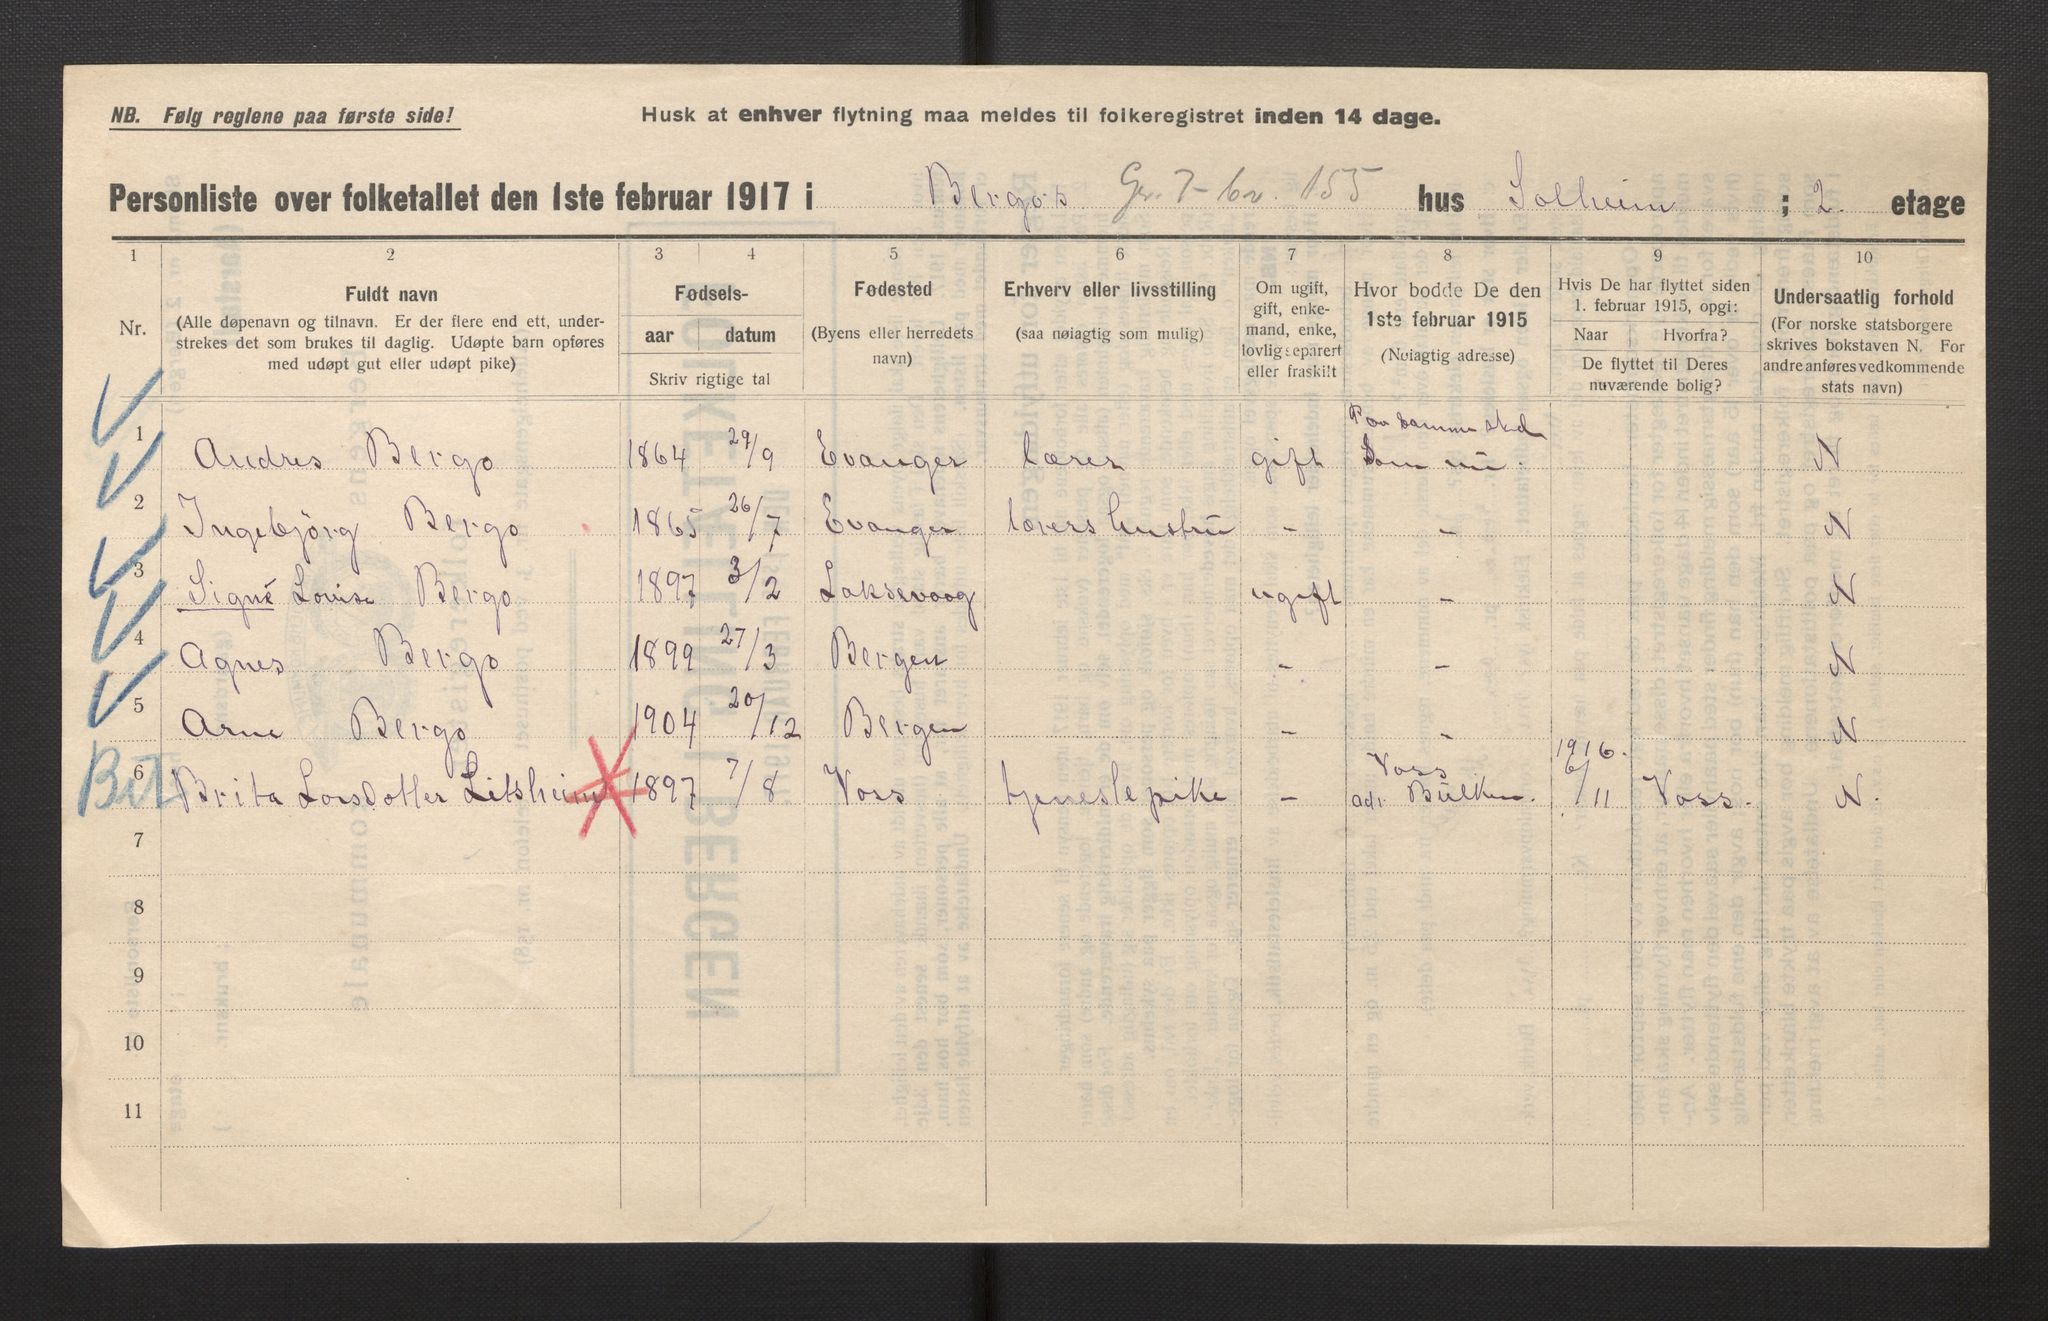 NB. Følg reglene paa første side!
Husk at enhver flytning maa meldes til folkeregistret inden 14 dage.
Personliste over folketallet den 1ste februar 1917 i Bergo's Gr. 7 - bn. 155 hus Solheim ; 2. etage
1 2 3 4 5 6 7 8 9 10
Nr.
Fuldt navn
(Alle døpenavn og tilnavn. Er der flere end ett, under-
strekes det som brukes til daglig. Udøpte barn opføres
med udøpt gut eller udøpt pike)
Fødsels-
aar datum
Skriv rigtige tal
Fødested
(Byens eller herredets
navn)
Erhverv eller livsstilling
(saa nøiagtig som mulig)
Om ugift,
gift, enke-
mand, enke,
lovlig separert
eller fraskilt
Hvor bodde De den
1ste februar 1915
(Nøiagtig adresse)
Hvis De har flyttet siden
1. februar 1915, opgi:
Naar Hvorfra?
De flyttet til Deres
nuværende bolig?
Undersaatlig forhold
(For norske statsborgere
skrives bokstaven N. For
andre anføres vedkommende
stats navn)
Paa samme sted
1 Andres Bergo 1864 29/9 Evanger lærer gift Som nu. N
2 Ingebjörg Bergo 1865 26/7 Evanger lærers hustru - - N
3 Signe Lovise Bergo 1897 3/2 Laksevaag ugift - N
4 Agnes Bergo 1899 27/3 Bergen - - N
5 Arne Bergo 1904 20/12 Bergen - - N
Voss 1916.
Bet. 6 Brita Larsdotter Litsheim 1897 7/8 Voss tjenestepike - adr. Bulken. 6/11 Voss. N.
7
8
9
10
11